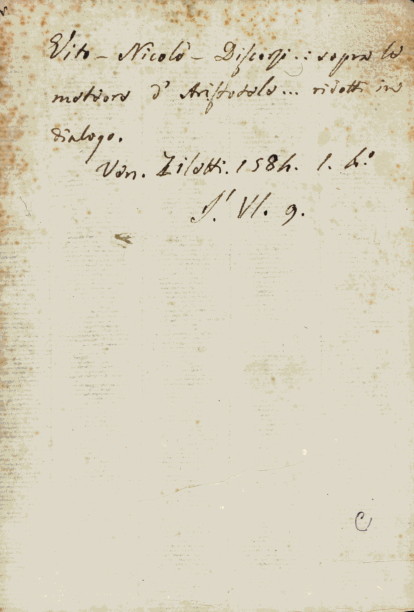 Vito - Nicolò - Discorsi..: sopra le
meteore d' Aristotele... ridotti in
dialogo.
Ven. Ziletti. 1584. 1. 4.º
9.
C